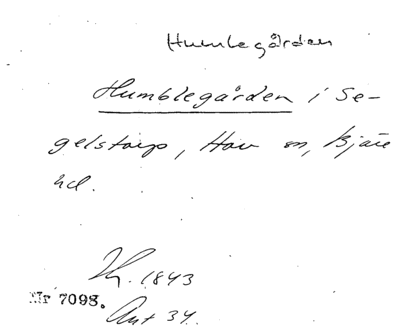 Humlegården
Humblegården i Se-
gelstorp, Hov sn, Bjäre
hd.
Th. 1843
Nr 7098.
Ant 34.